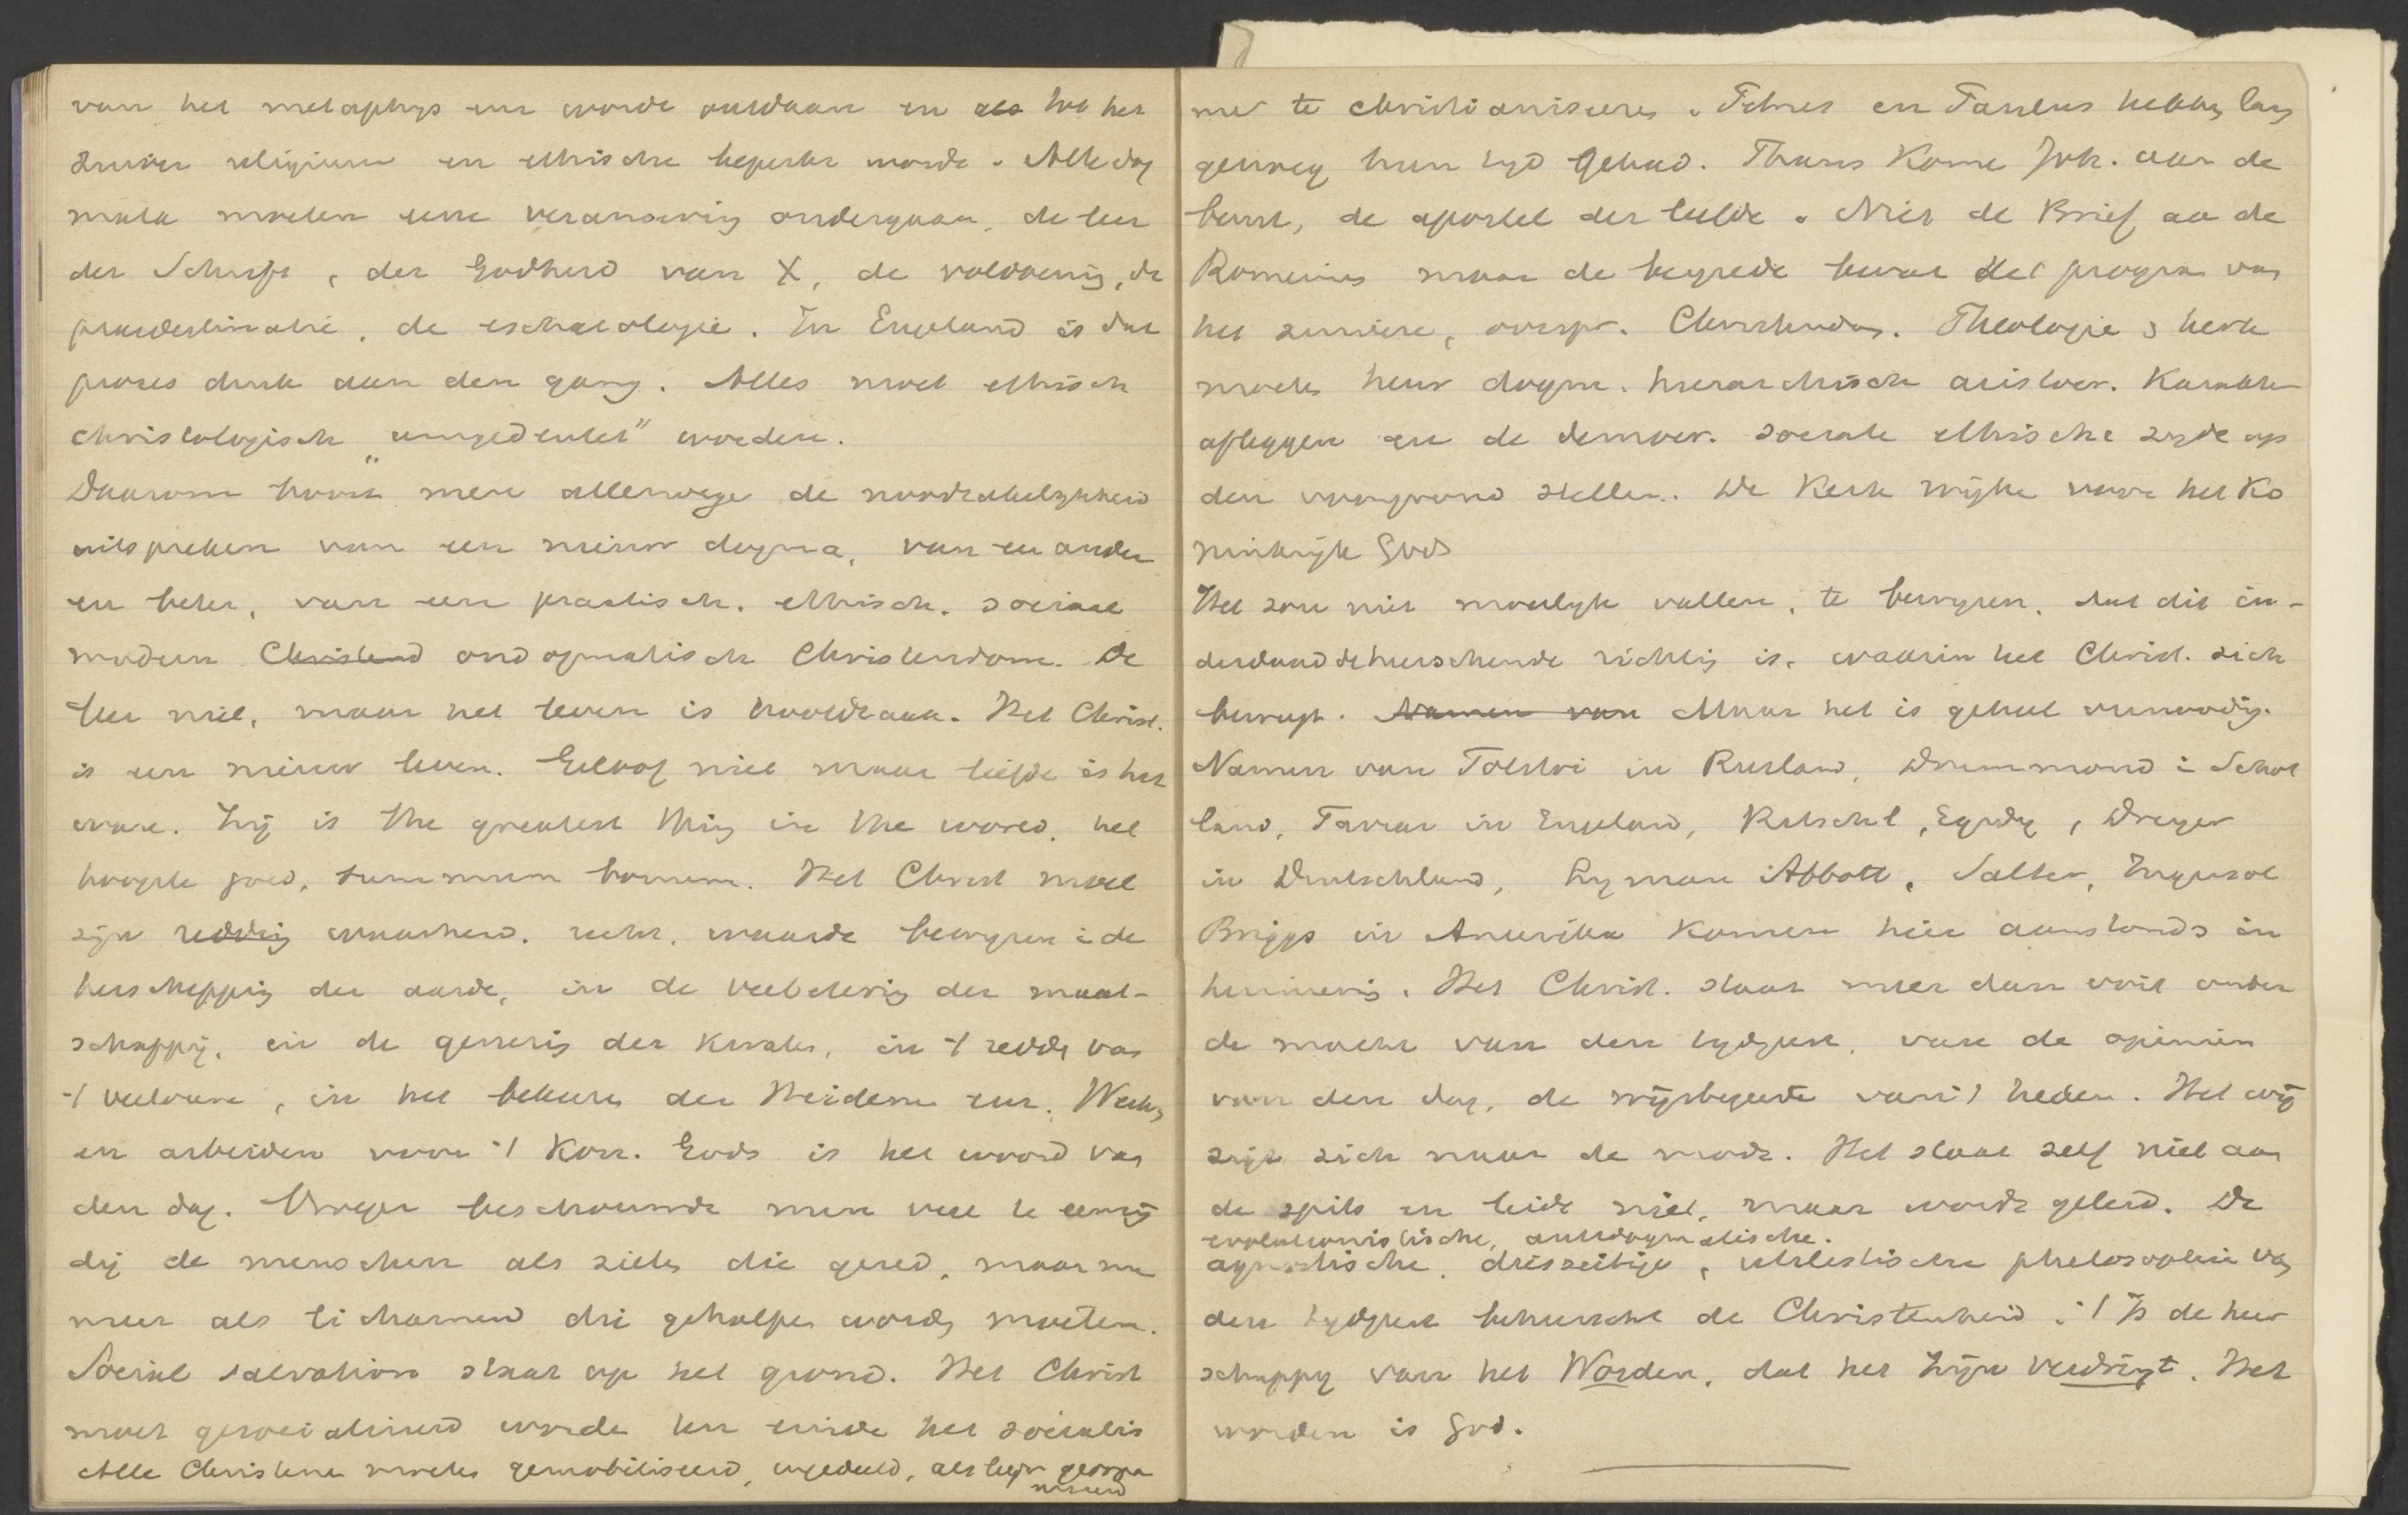 van het metaphys en worde ontdaan en als tot het
zuiver religieuse en ethische beperkt worde. Alle dog
mata moeten eene verandering ondergaan, de leer
der Schrift, der Godheid van X, de voldoening, de
praedestinatie, de eschatologie. In Engeland is dat
proces druk aan den gang. Alles moet ethisch
christologisch „umgedeutet" worden.
Daarom hoort men allerwege de noodzakelijkheid
uitspreken van een nieuw dogma, van een ander
en beter, van een practisch. ethisch. sociaal
modern Christend ondogmatisch Christendom. De
leer niet, maar het leven is hoofdzaak. Het Christ.
is een nieuw leven. Geloof niet maar liefde is het
ware. Zij is the greatest thing in the world, het
hoogste goed, summum bonum. Het Christ moet
zijn redding waarheid, recht, waarde bewijzen i de
herschepping der aarde, in de verbetering der maat-
schappij, in de genezing der kranken, in 't redde van
't verlorene, in het bekeeren der Heidenen enz. Werken
en arbeiden voor 't Kon. Gods is het woord van
den dag. Vroeger beschouwde men veel te eenzij
dig de menschen als zielen die gered, maar nu
meer als lichamen die geholpen worden moeten.
Social salvation staat op het grond. Het Christ
moet gesocialiseerd worde ten einde het socialis
Alle Christenen moeten gemobiliseerd, ingedeeld, als leger georga
niseerd
me te christianiseeren. Petrus en Paulus hebben lang
genoeg hun tijd gehad. Thans kome Joh. aan de
beurt, de apostel der liefde. Niet de Brief aa de
Romeinen maar de bergrede bevat het program van
het zuivere, oorspr. Christendom. Theologie & kerk
moeten hun dogm. hierarchisch aristocr. karakter
afleggen en de democr. sociale ethische zijde op
den voorgrond stellen. De Kerk wijke voor het Ko
ninkrijk Gods
Het zou niet moeilijk vallen, te bewijzen, dat dit in-
derdaad de heerschende richting is, waarin het Christ. zich
beweegt. Namen van Maar het is geheel onnoodig.
Namen van Tolstoi in Rusland, Drummond i Schot
land, Farrar in Engeland, Ritschl, Egidy, Dreyer
in Deutschland, Lyman Abbott, Salter, Ingersol
Briggs in Amerika komen hier aanstonds in
herinnering. Het Christ. staat meer dan ooit onder
de macht van den tijdgeest, van de opinien
van den dag, de wijsbegeerte van 't heden. Het wij
zigt zich naar de mode. Het staat zelf niet aan
de spits en leidt niet, maar wordt geleid. De
evolutionistische, antidogmatische.
agnostische, diesseitige, idealistische philosophie van
den tijdgeest beheerscht de Christenheid. 't Is de heer
schappij van het Worden, dat het Zijn verdringt. Het
worden is God.